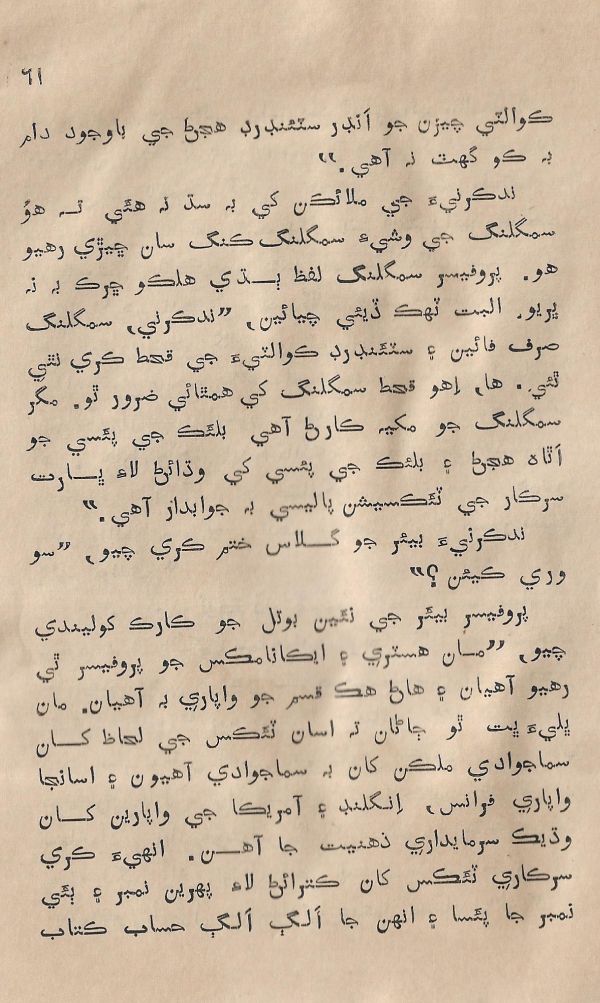 ٦١
ڪوالٽي چيزن جو اَنڊر سٽئنڊرڊ هجڻ جي باوجود دام
به ڪو گهٽ نه آهي.“
ندڪرنيءَ جي ملائڪن کي به سڌ نه هئي تـه هوُ
سمگلنگ جي وشيءَ سمگلنگ ڪنگ سان ڇيڙي رهيو
هو. پروفيسر سمگلنگ لفظ ٻــڌي هلڪو ڇرڪ به نہ
ڀريو. البت ٽهڪ ڏيئي چيائين، ”ندڪرني، سمگلنگ
صرف فائين ۽ سٽئنڊرڊ ڪوالٽيءَ جي قحط ڪري نٿي
ٿئيِ. ها، اِهو قحط سمگلنگ کي همٿائي ضرور ٿو. مگر
سمگلنگ جو مکيه ڪارڻ آهي بلئڪ جي پئسي جو
اَٿاهه هجڻ ۽ بلئڪ جي پئسي کي وڌائڻ لاءِ ڀــارت
سرڪار جي ٽئڪسيشن پاليسي به جوابدار آهي.“
ندڪرنيءَ بيئر جو گــلاس ختم ڪري چيو، ”سو
وري ڪيئن؟“
پروفيسر بيئر جي نئين بوتل جو ڪارڪ کوليندي
چيو، ”مــان هسٽري ۽ ايڪانامڪس جو پروفيسر ٿي
رهيو آهيان ۽ هاڻ هڪ قسم جو واپاري به آهيان. مان
ڀليءَ ڀت ٿو ڄاڻان ته اسان ٽئڪس جي لحاظ کــان
سماجوادي ملڪن کان به سماجوادي آهيون ۽ اسانجا
واپاري فرانس، اِنگلنڊ ۽ آمريڪا جي واپارين کــان
وڌيڪ سرمايداري ذهنيت جا آهــن. انهيءَ ڪري
سرڪاري ٽئڪس کان ڪترائڻ لاءِ پهرين نمبر ۽ ٻئي
نمبر جا پئسا ۽ انهن جا اَلڳ اَلڳ حساب ڪتاب